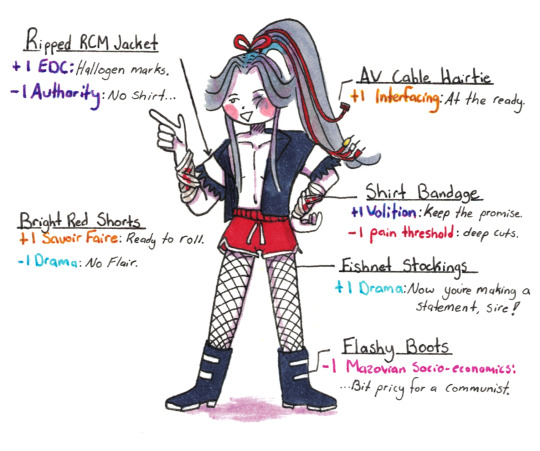 Ripped RCM Jacket
+1 EDC: Hallogen marks.
-1 Authority: No shirt...
AV Cable Hairtie
+1 Interfacing: At the ready.
Shirt Bandage
+1 Volition: Keep the promise.
-1 pain threshold: deep cuts.
Bright Red Shorts
+1 Savoir Faire: Ready to roll.
-1 Drama: No Flair.
Fishnet Stockings
+1 Drama: Now you're making a
statement, sire!
Flashy Boots
-1 Mazovian Socio-economics:
...Bit pricy for a communist.